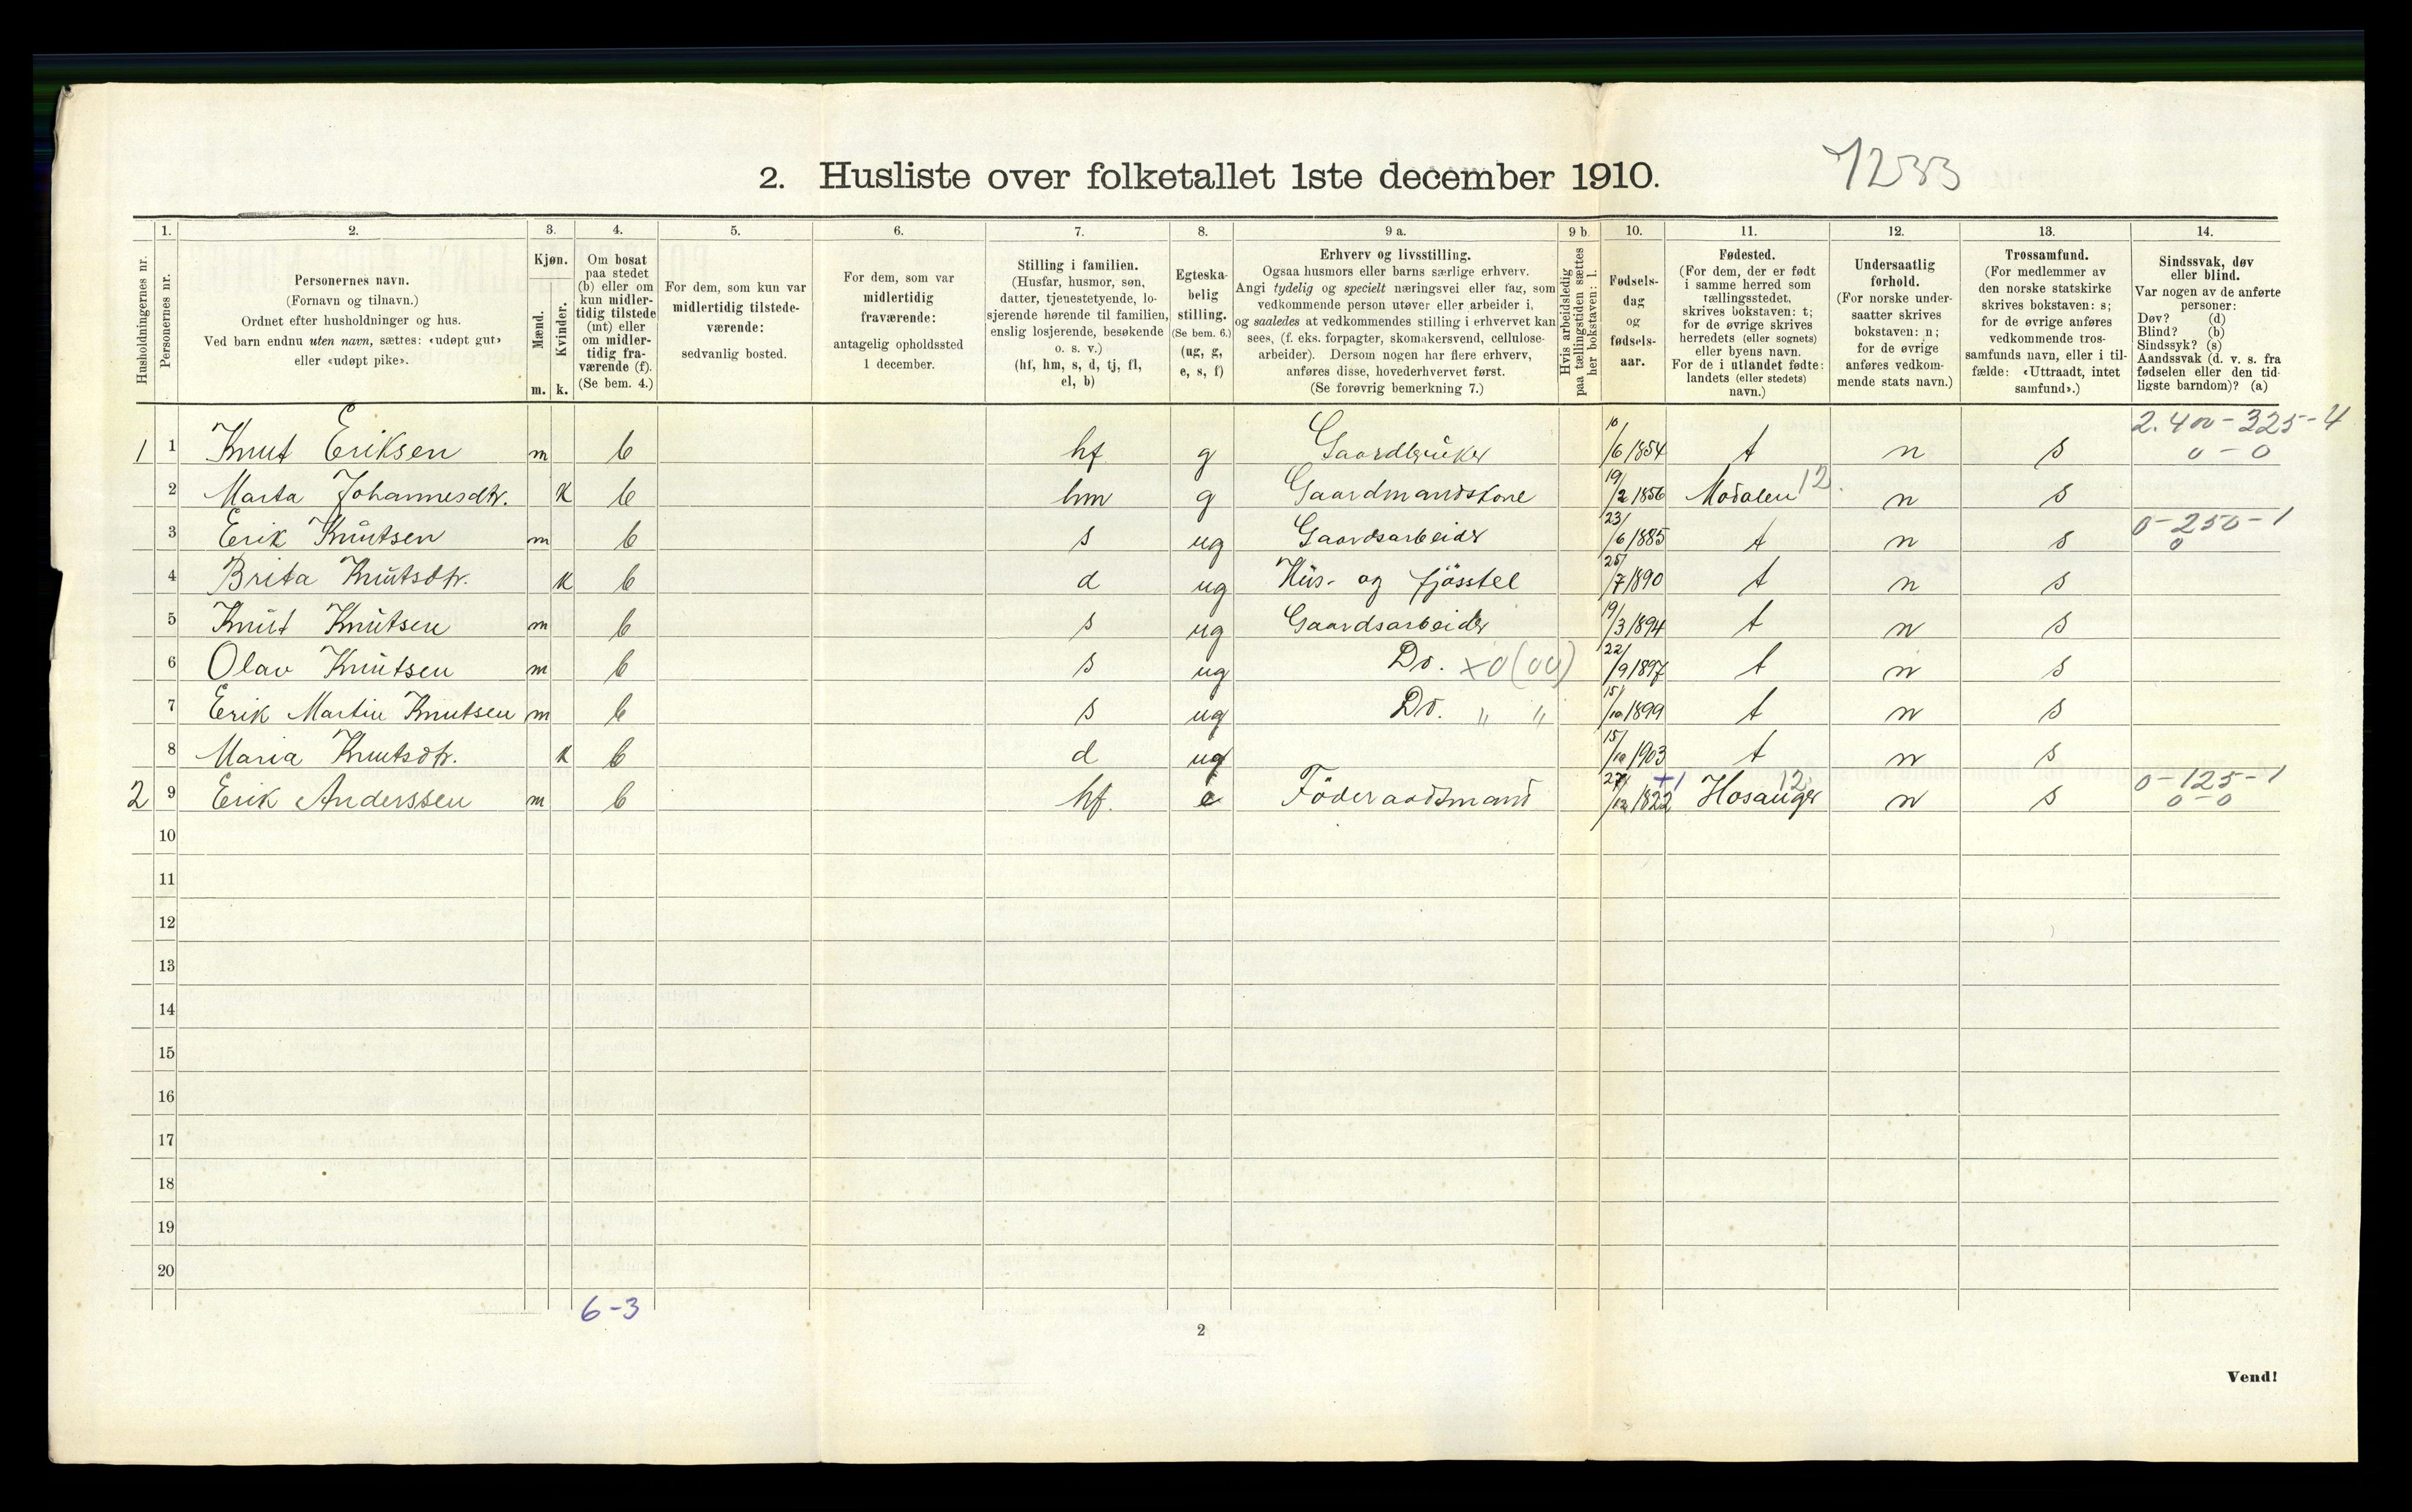 2. Husliste over folketallet 1ste december 1910. 7233
1. 2. 3. 4. 5. 6. 7. 8. 9 a. 9 b. 10. 11. 12. 13. 14.
Husholdningernes nr.
Personernes nr.
Personernes navn.
(Fornavn og tilnavn.)
Ordnet efter husholdninger og hus.
Ved barn endnu uten navn, sættes: «udøpt gut»
eller «udøpt pike».
Kjøn.
Mænd.
Kvinder.
m. k.
Om bosat
paa stedet
(b) eller om
kun midler-
tidig tilstede
(mt) eller
om midler-
tidig fra-
værende (f).
(Se bem. 4.)
For dem, som kun var
midlertidig tilstede-
værende:
sedvanlig bosted.
For dem, som var
midlertidig
fraværende:
antagelig opholdssted
1 december.
Stilling i familien.
(Husfar, husmor, søn,
datter, tjenestetyende, lo-
sjerende hørende til familien,
enslig losjerende, besøkende
o. s. v.)
(hf, hm, s, d, tj, fl,
el, b)
Egteska-
belig
stilling.
(Se bem. 6.)
(ug, g,
e, s, f)
Erhverv og livsstilling.
Ogsaa husmors eller barns særlige erhverv.
Angi tydelig og specielt næringsvei eller fag, som
vedkommende person utøver eller arbeider i,
og saaledes at vedkommendes stilling i erhvervet kan
sees, (f. eks. forpagter, skomakersvend, cellulose-
arbeider). Dersom nogen har flere erhverv,
anføres disse, hovederhvervet først.
(Se forøvrig bemerkning 7.)
Hvis arbeidsledig
paa tællingstiden sættes
her bokstaven: l.
Fødsels-
dag
og
fødsels-
aar.
Fødested.
(For dem, der er født
i samme herred som
tællingsstedet,
skrives bokstaven: t;
for de øvrige skrives
herredets (eller sognets)
eller byens navn.
For de i utlandet fødte:
landets (eller stedets)
navn.)
Undersaatlig
forhold.
(For norske under-
saatter skrives
bokstaven: n;
for de øvrige
anføres vedkom-
mende stats navn.)
Trossamfund.
(For medlemmer av
den norske statskirke
skrives bokstaven: s;
for de øvrige anføres
vedkommende tros-
samfunds navn, eller i til-
fælde: «Uttraadt, intet
samfund».)
Sindssvak, døv
eller blind.
Var nogen av de anførte
personer:
Døv? (d)
Blind? (b)
Sindssyk? (s)
Aandssvak (d. v. s. fra
fødselen eller den tid-
ligste barndom)? (a)
1 1 Knut Eriksen m b hf g Gaardbruker 10/6 1854 t n s 2.400-325-4 0-0
2 Marta Johannesdtr. k b hm g Gaardmandskone 19/2 1856 Modalen 12. n s
3 Erik Knutsen m b s ug Gaardsarbeider 23/6 1885 t n s 0-250-1 0
4 Brita Knutsdtr. k b d ug Hus- og fjösstel 25/7 1890 t n s
5 Knut Knutsen m b s ug Gaardsarbeider 19/3 1894 t n s
6 Olav Knutsen m b s ug Do. x0(00) 22/9 1897 t n s
7 Erik Martin Knutsen m b s ug Do. " " 15/10 1899 t n s
8 Maria Knutsdtr. k b d ug 15/10 1903 t n s
2 9 Erik Anderssen m b hf. e Föderaadsmand 27/12 1822 +1 Hosanger 12. n s 0-125-1 0-0
10
11
12
13
14
15
16
17
18
19
20
6-3
2
Vend!